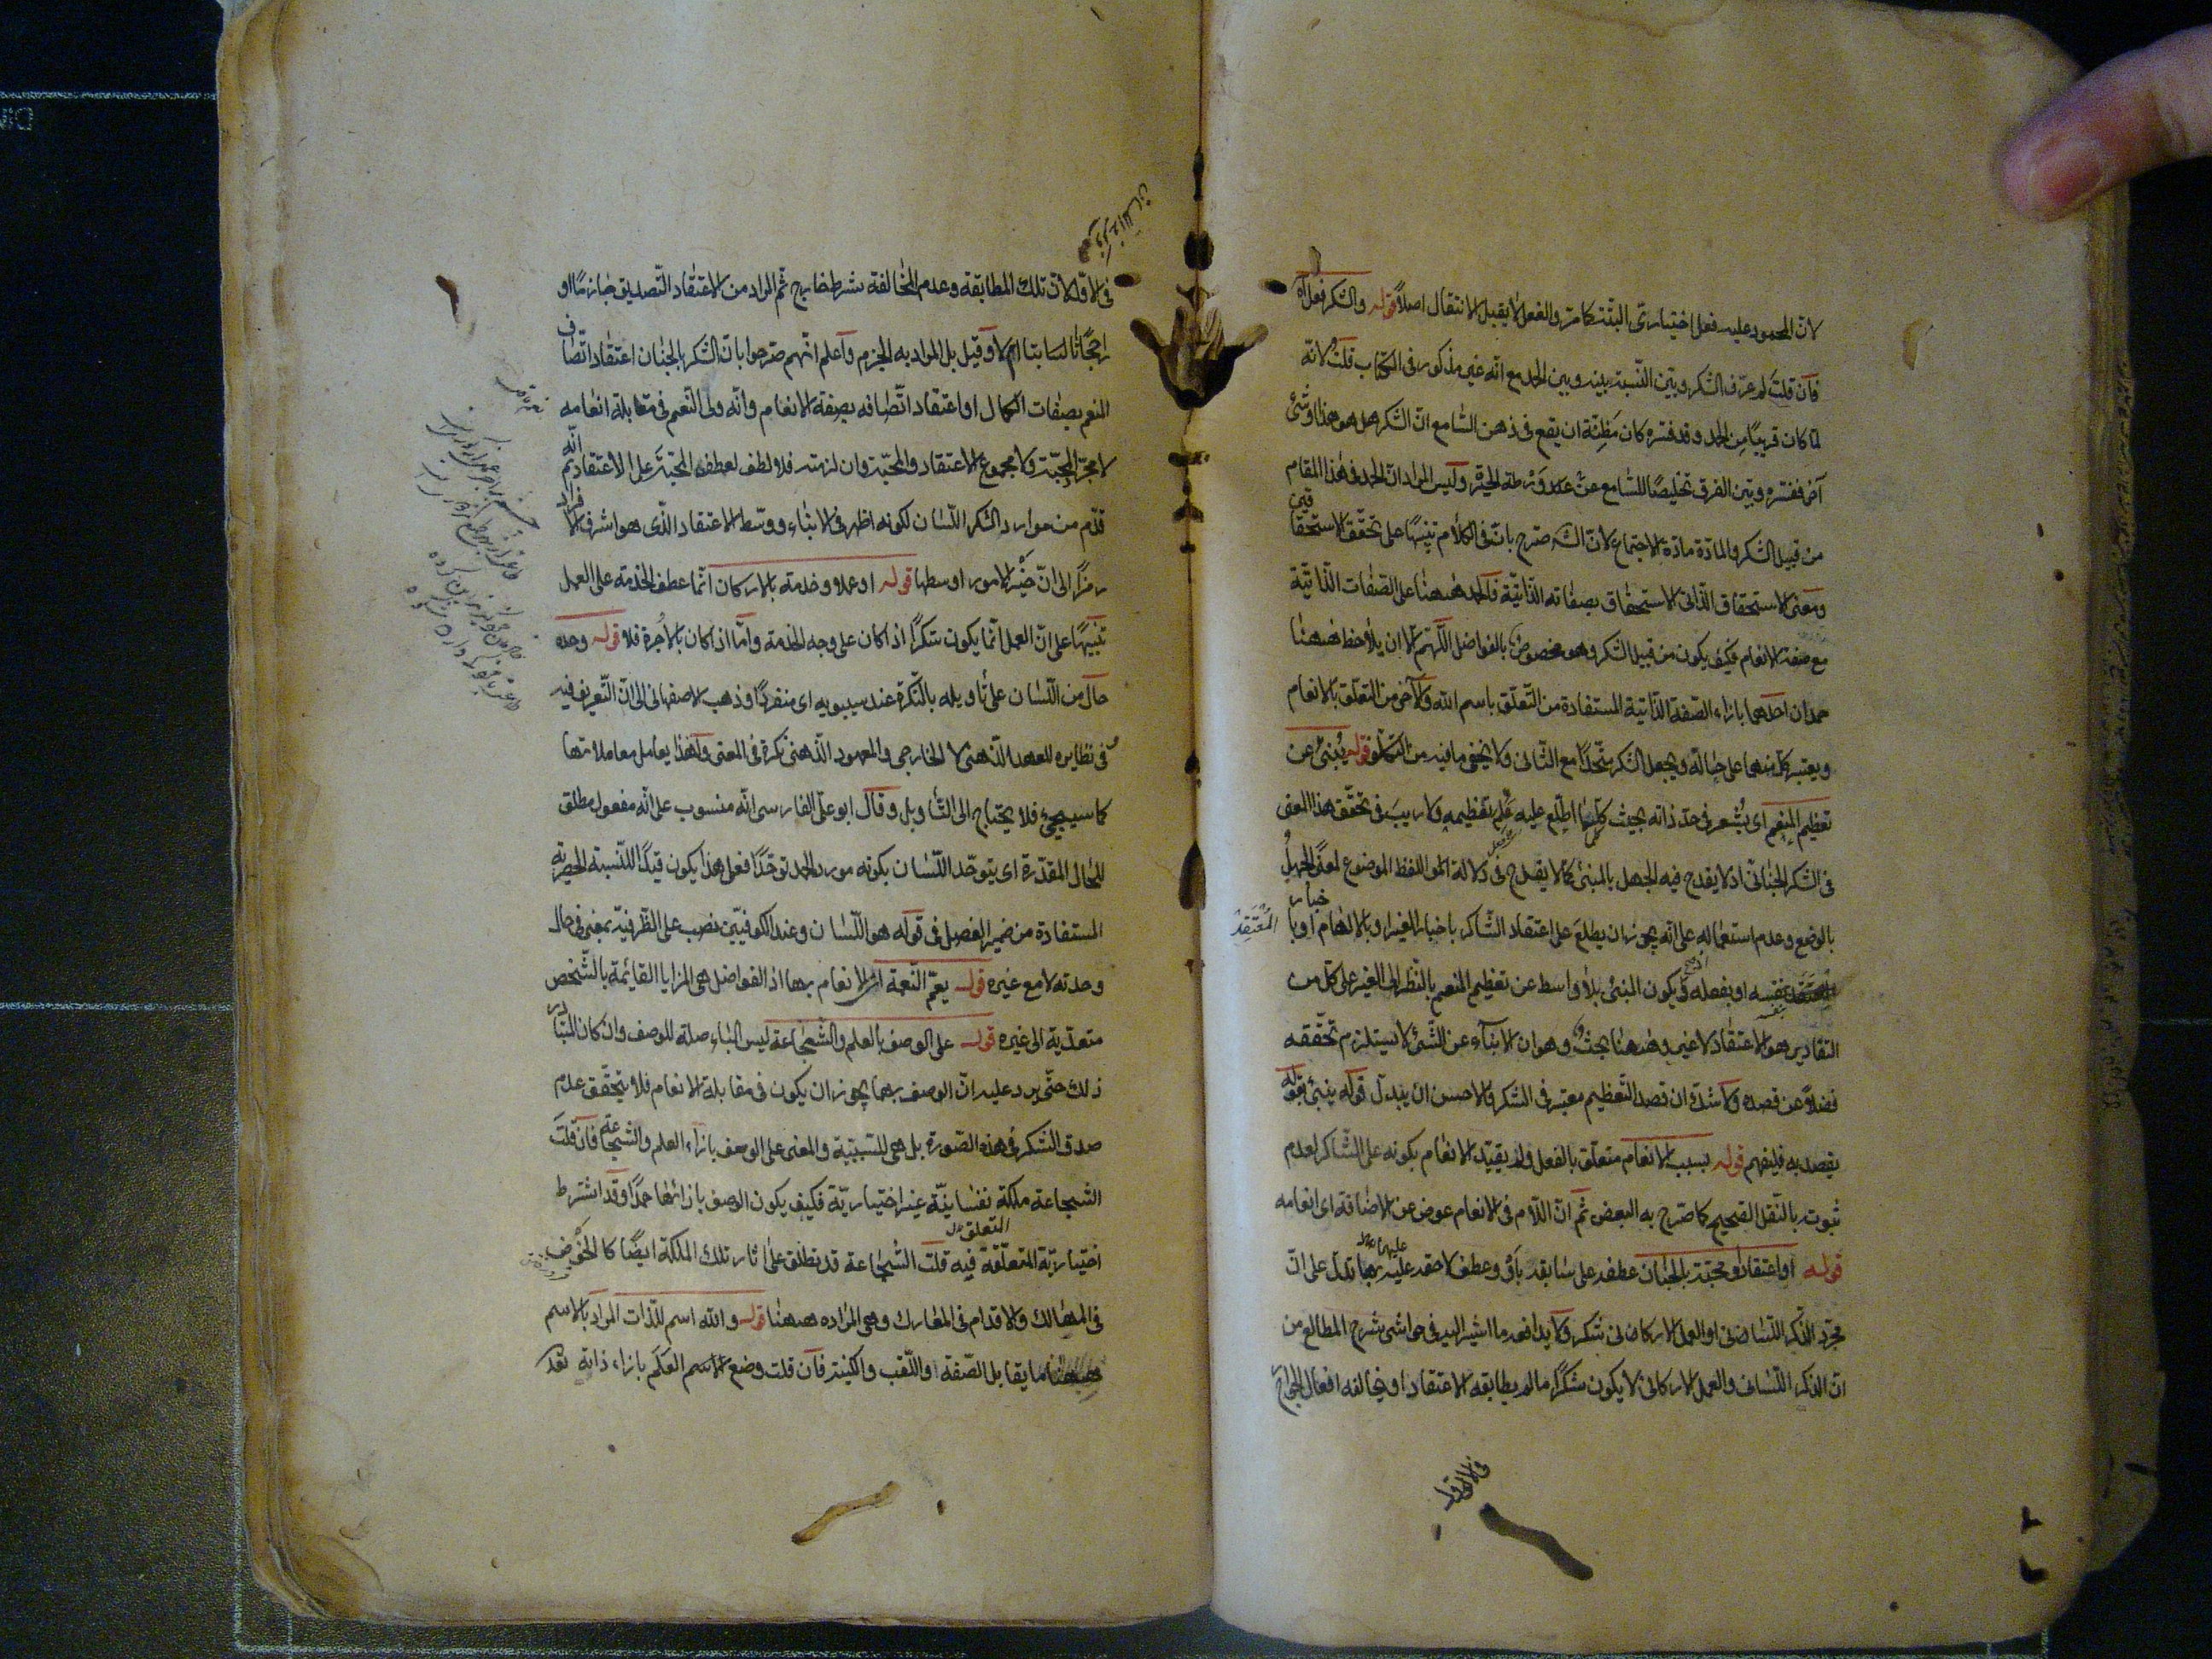 لان المحمود عليه فعل اختيارى البتة كما مر والفعل لا يقبل الانتقال اصلا قوله والشكر فعل اه
فان قلت لم عرف الشكر وبين النسبة بينه وبين الحمد مع انه غير مذكور فى الكتاب قلت لانه
لما كان قريبًا من الحمد وقد فسره كان مظنة ان يقع فى ذهن السامع ان الشكر هل هو هذا او شئ
آخر ففسره وبين الفرق تخليصًا للسامع عن ورطة الحيرة وليس المراد ان الحمد فى هذا المقام
من قبيل الشكر والمادة مادة الاجتماع لان الش صرح بان فى الكلام تنبيهًا على تحقق الاستحقاقين
ومعنى الاستحقاق الذاتى الاستحقاق بصفاته الذاتية فالحمد ههنا على الصفات الذاتية
مع صفة الانعام فكيف يكون من قبيل الشكر وهو مخصوص بالفواضل اللهم الا ان يلاحظ ههنا
حمدان احدهما بازاء الصفة الذاتية المستفادة من التعلق باسم الله والآخر من التعلق بالانعام
ويعتبر كل منهما على حياله ويجعل الشكر متحدًا مع الثانى ولا يخفى ما فيه من التكلف قوله ينبئ عن
تعظيم المنعم اى يشعر فى حد ذاته بحيث كلما اطلع عليه علم تعظيمه ولا ريب فى تحقق هذا المعنى
فى الشكر الجنانى اذ لا يقدح فيه الجهل بالمبنئ كما لا يقدح فى دلالة اللفظ الموضوع لمعنى الجهل
بالوضع وعدم استعماله على انه يجوز ان يطلع على اعتقاد الشاكر باخبار الغير او بالالهام او باخبار
المعتقد
بنفسه او بفعله فيكون المنبئ بلا واسط عن تعظيم المنعم بالنظر الى الغير على كل من
التقادير هو الاعتقاد لا غير وههنا بحث وهو ان الانباء عن الشئ لا يستلزم تحققه
فضلا عن قصده ولا شك ان قصد التعظيم معتبر فى الشكر فالاحسن ان يبدل قوله ينبئ بقوله
يقصد به فليفهم قوله بسبب الانعام متعلق بالفعل ولم يقيد الانعام بكونه على الشاكر لعدم
ثبوته بالنقل الصحيح كما صرح به البعض ثم ان اللام فى الانعام عوض عن الاضافة اى انعامه
قوله او اعتقادا ومحبة بالجنان عطفه على سابقه باو وعطف لاحقه عليه بها تدل على ان
مجرد الذكر اللسانى او العمل الاركانى شكر ولا يدافعه ما اشير اليه فى حواشى شرح المطالع من
ان الذكر اللسانى والعمل الاركانى لا يكون شكرًا ما لم يطابقه الاعتقاد او يخالفه افعال الجوارح
فى الاول
فى الاول لان تلك المطابقة وعدم المخالفة شرط خارج ثم المراد من الاعتقاد التصديق جازمًا او
راجحًا ثابتا ام لا وقيل بل المراد به الجزم واعلم انهم صرحوا بان الشكر الجنان اعتقاد اتصاف
المنعم بصفات الكمال او اعتقاد اتصافه بصفة الانعام وانه ولى النعم فى مقابلة انعامه
لا مجرد المحبة ولا مجموع الاعتقاد والمحبة وان لزمته فلا لطف لعطف المحبة على الاعتقاد ثم انه
قدم من موارد الشكر اللسان لكونه اظهر فى الانباء ووسط الاعتقاد الذى هو اشرف الافراد
رمزًا الى ان خير الامور اوسطها قوله او عملا وخدمة بالاركان انما عطف الخدمة على العمل
تنبيهًا على ان العمل انما يكون شكرًا اذا كان على وجه الخدمة واما اذا كان بالاجرة فلا قوله وحده
حال من اللسان على تاويله بالنكرة عند سيبويه اى منفردًا وذهب الاصفهانى الى ان التعريف فيه
وفى نظايره للعهد الذهنى لا الخارجى والمعهود الذهنى نكرة فى المعنى ولهذا يعامل معاملاتها
كما سيجئ فلا يحتاج الى التاويل وقال ابو على الفارسى انه منسوب على انه مفعول مطلق
للحال المقدرة اى يتوحد اللسان بكونه مورد الحمد توحدًا فعلى هذا يكون قيدًا للنسبة الحصرية
المستفادة من ضمير الفصل فى قوله هو اللسان وعند الكوفيين نصب على الظرفية بمعنى فى حال
وحدته لا مع غيره قوله يعم النعمة اى الانعام بها اذ الفواضل هى المزايا القائمة بالشخص
متعدية الى غيره قوله على الوصف بالعلم والشجاعة ليس الباء صلة للوصف وان كان المتبادر
ذلك حتى يرد عليه ان الوصف بهما يجوز ان يكون فى مقابلة الانعام فلا يتحقق عدم
صدق الشكر فى هذه الصورة بل هى للسببية والمعنى على الوصف بازاء العلم والشجاعة فان قلت
الشجاعة ملكة نفسانية غير اختيارية فكيف يكون الوصف بازائها حمدًا وقد اشترط
اختيارية المتعلقة فيه قلت الشجاعة قد تطلق على اثار تلك الملكة ايضًا كالخوض
فى المهالك والاقدام فى المعارك وهى المراده ههنا قوله والله اسم للذات المراد بالاسم
ههنا ما يقابل الصفة او اللقب والكنية فان قلت وضع الاسم العلم بازاء ذاته تعالى